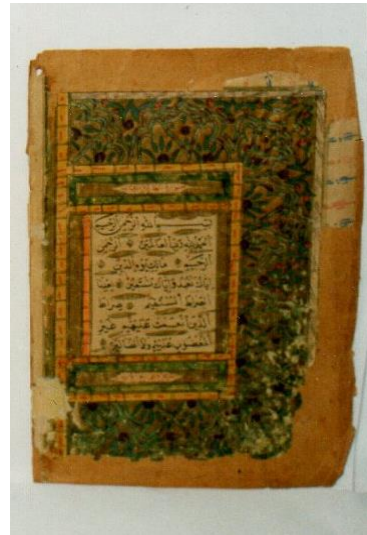 بسم الله الرحمن الرحيم
الحمد لله رب العالمين الرحمن
الرحيم مالك يوم الدين
إياك نعبد وإياك نستعين اهدنا
الصراط المستقيم صراط
الذين أنعمت عليهم غير
المغضوب عليهم ولا الضالين